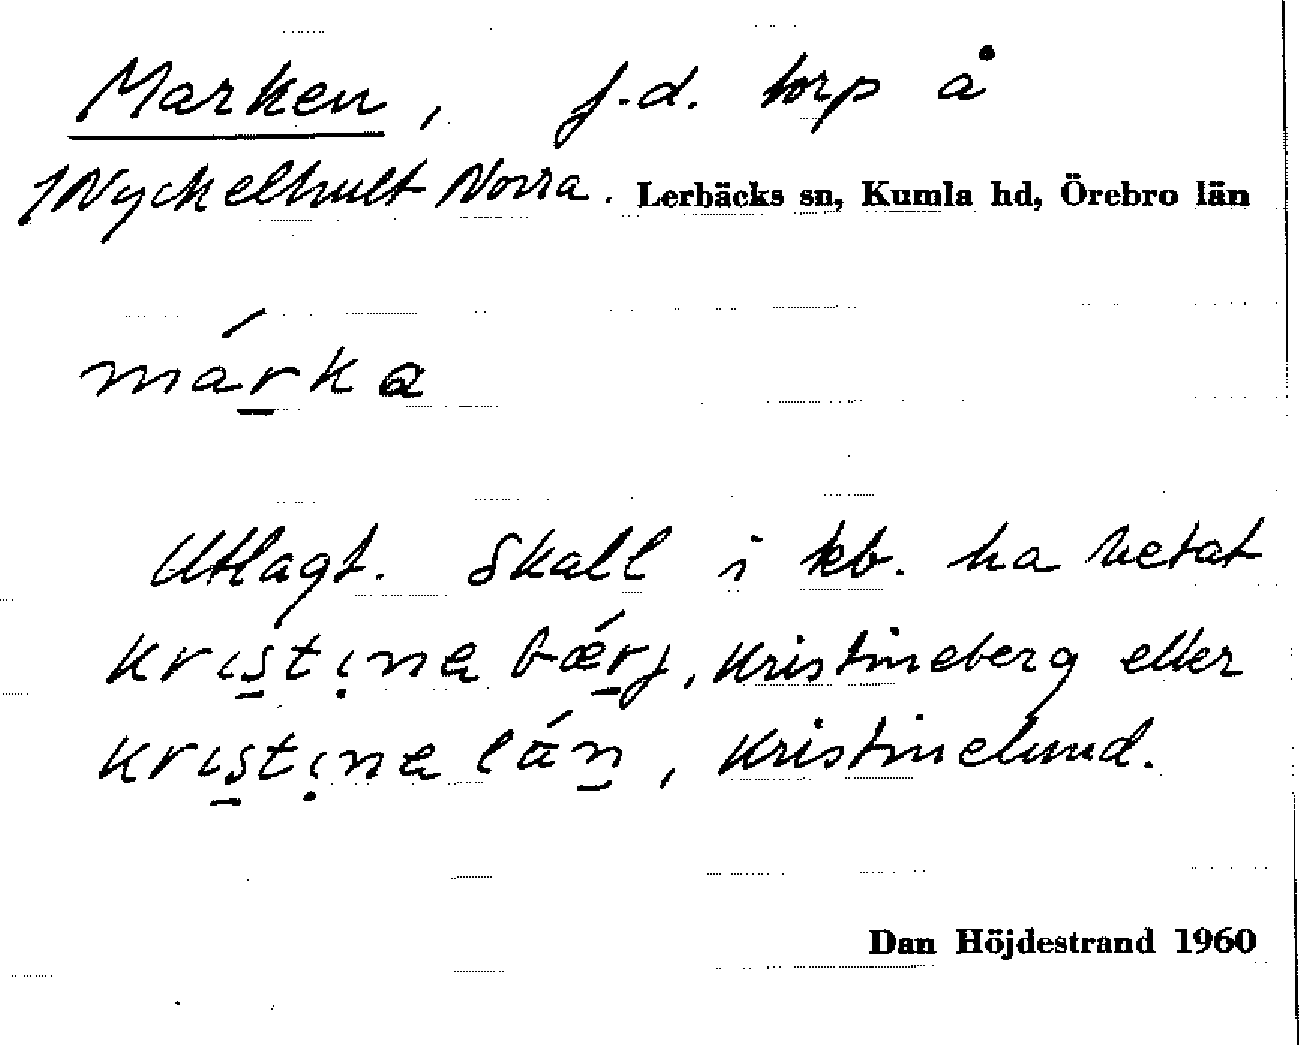 Marken, f.d. torp å
1/Nyckelhult Norra. Lerbäcks sn, Kumla hd, Örebro län
márka
Utlagt. Skall i kb. ha hetat
kristịnabǽrj, Kristineberg eller
kristịnalán, Kristinelund.
Dan Höjdestrand 1960